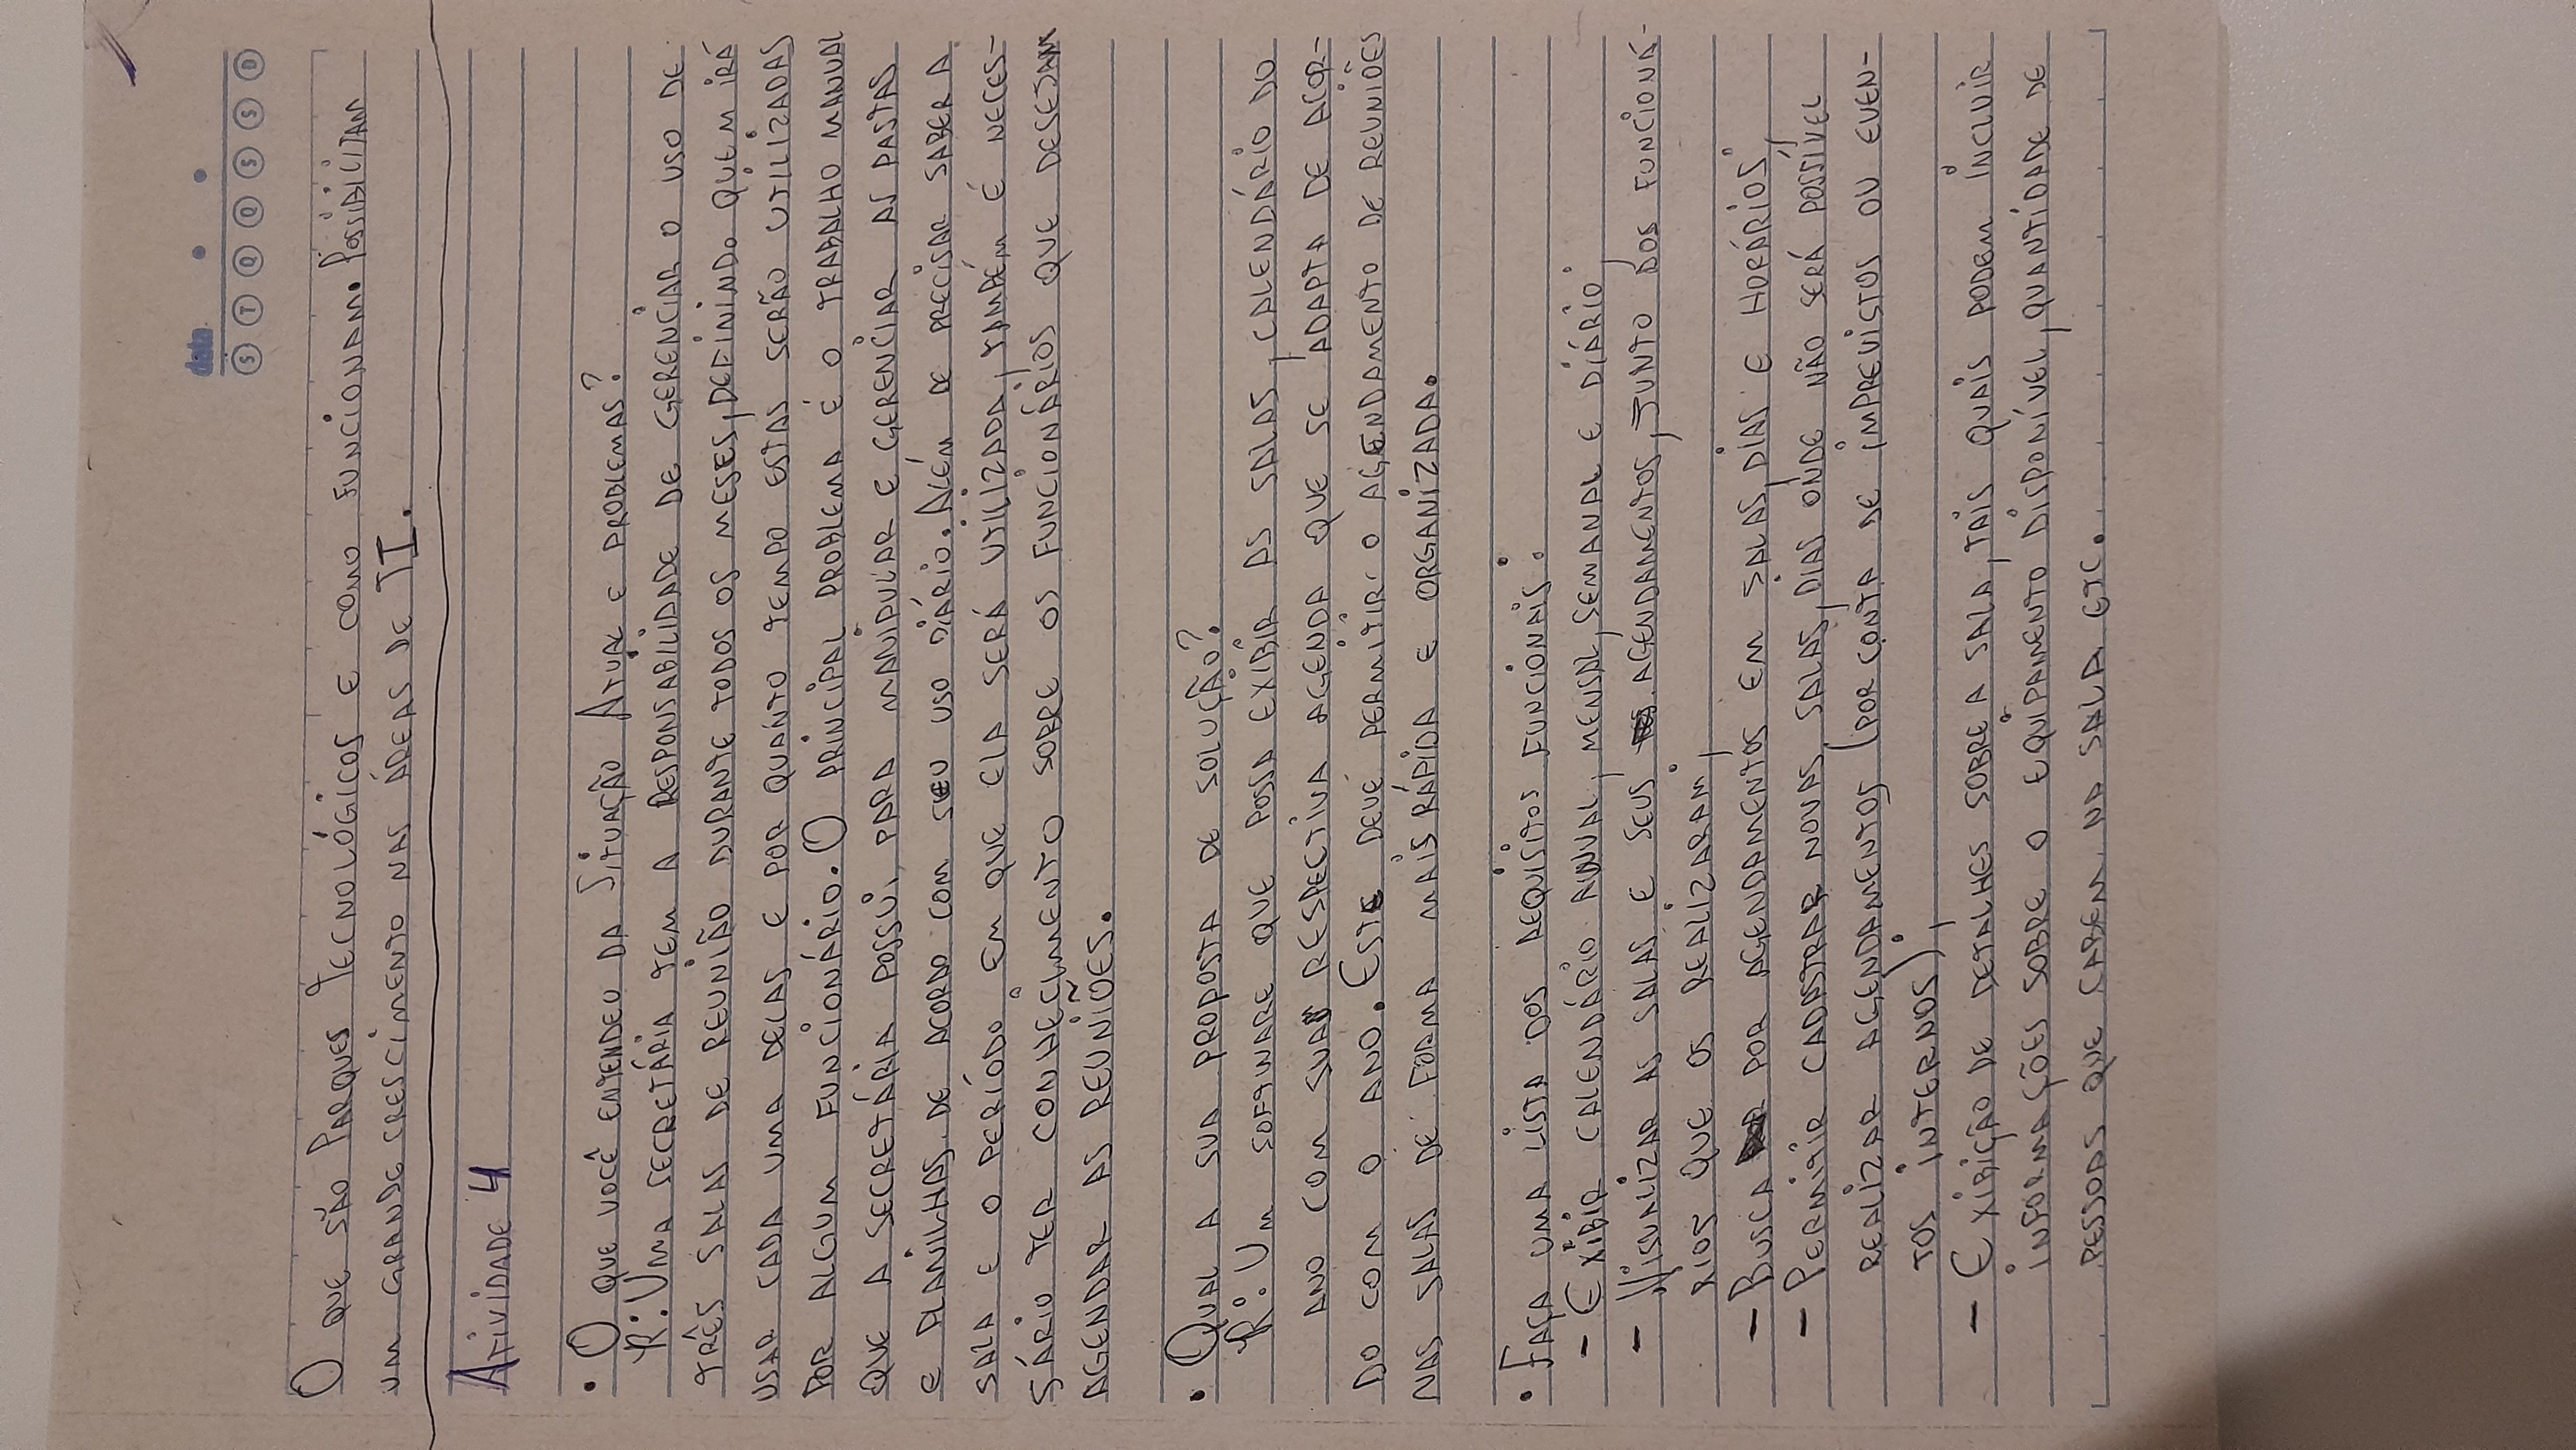 data
S T Q Q S S D
O QUE SÃO PARQUES TECNOLÓGICOS E COMO FUNCIONAM. POSSIBILITAM
UM GRANDE CRESCIMENTO NAS ÁREAS DE TI.
ATIVIDADE 4
• O QUE VOCÊ ENTENDEU DA SITUAÇÃO ATUAL E PROBLEMAS?
R: UMA SECRETÁRIA TEM A RESPONSABILIDADE DE GERENCIAR O USO DE
TRÊS SALAS DE REUNIÃO DURANTE TODOS OS MESES, DEFININDO QUEM IRÁ
USAR CADA UMA DELAS E POR QUANTO TEMPO ESTAS SERÃO UTILIZADAS
POR ALGUM FUNCIONÁRIO. O PRINCIPAL PROBLEMA É O TRABALHO MANUAL
QUE A SECRETÁRIA POSSUI PARA MANIPULAR E GERENCIAR AS PASTAS
E PLANILHAS DE ACORDO COM SEU USO DIÁRIO. ALÉM DE PRECISAR SABER A
SALA E O PERÍODO EM QUE ELA SERÁ UTILIZADA, TAMBÉM É NECES-
SÁRIO TER CONHECIMENTO SOBRE OS FUNCIONÁRIOS QUE DESEJAM
AGENDAR AS REUNIÕES.
• QUAL A SUA PROPOSTA DE SOLUÇÃO?
R: UM SOFTWARE QUE POSSA EXIBIR AS SALAS, CALENDÁRIO DO
ANO COM SUA RESPECTIVA AGENDA QUE SE ADAPTA DE ACOR-
DO COM O ANO. ESTE DEVE PERMITIR O AGENDAMENTO DE REUNIÕES
NAS SALAS DE FORMA MAIS RÁPIDA E ORGANIZADA.
• FAÇA UMA LISTA DOS REQUISITOS FUNCIONAIS:
- EXIBIR CALENDÁRIO ANUAL, MENSAL, SEMANAL E DIÁRIO;
- VISUALIZAR AS SALAS E SEUS AGENDAMENTOS, JUNTO DOS FUNCIONÁ-
RIOS QUE OS REALIZARAM;
- BUSCA POR AGENDAMENTOS EM SALAS, DIAS E HORÁRIOS;
- PERMITIR CADASTRAR NOVAS SALAS, DIAS ONDE NÃO SERÁ POSSÍVEL
REALIZAR AGENDAMENTOS (POR CONTA DE IMPREVISTOS OU EVEN-
TOS INTERNOS);
- EXIBIÇÃO DE DETALHES SOBRE A SALA, TAIS QUAIS PODEM INCLUIR
INFORMAÇÕES SOBRE O EQUIPAMENTO DISPONÍVEL, QUANTIDADE DE
PESSOAS QUE CABEM NA SALA ETC.